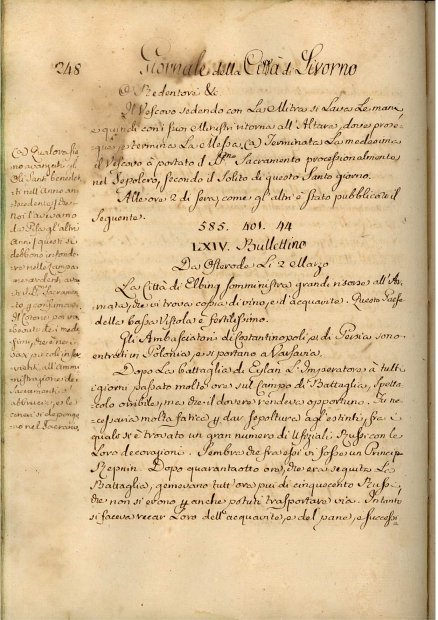 248 Giornale della Città di Livorno
O Redentore &c.
Il Vescovo sedendo con La Mitra si Lava Le mani
e quindi con i suoi Ministri ritorna all'Altare, dove prose:
gue, e termina La Messa, (a) Terminata La medesima
il Vescovo à portato il SSmo Sacramento processionalmente
nel Sepolcro, secondo il Solito di questo Santo giorno.
Alle ore 2 di sera, come gli altri è stato pubblicato il
Seguente.
585. 401. 44
LXIV. Bullettino
Da Osterode Li 2 Marzo
La Città di Elbing somministra grandi risorse all'Ar:
mata, che vi trova copia di vino, e d'acquavite. Questo Paese
della bassa Vistola è fertilissimo.
Gli Ambasciatori di Costantinopoli, e di Persia sono
entrati in Polonia, e si portano a Varsavia.
Dopo La battaglia di Eylau L'Imperatore à tutti
i giorni passato molte ore sul Campo di Battaglia, spetta:
colo orribile, ma che il dovere rendeva opportuno. Fu ne:
cessaria molta fatica per dar sepoltura agl'estinti, fra i
quali si è trovato un gran numero di Ufiziali Russi con le
Loro decorazioni. Sembra che fra essi vi fosse un Principe
Repnin. Dopo quarantotto ore, che era seguita La
Battaglia, gemevano tutt'ora più di cinquecento Russi,
che non si erono per anche potuti trasportare via. Intanto
si faceva recar Loro dell'acquavite, e del pane, e success:
(a) Qualora sie
no avanzati
Oli Santi benedet
ti nell'Anno an
tecedente
altri
Anni questi si
debbono infonde
re nelle Lampa
de ardenti, ava
ti il SSmo Sacramen
to
Il Cotone poi
de i mede
simi, che
in
servienti all'ammi
nistrazione de i
Sacramenti, si
abbrucia, e le
ceneri si depongo
no nel Sacrario.